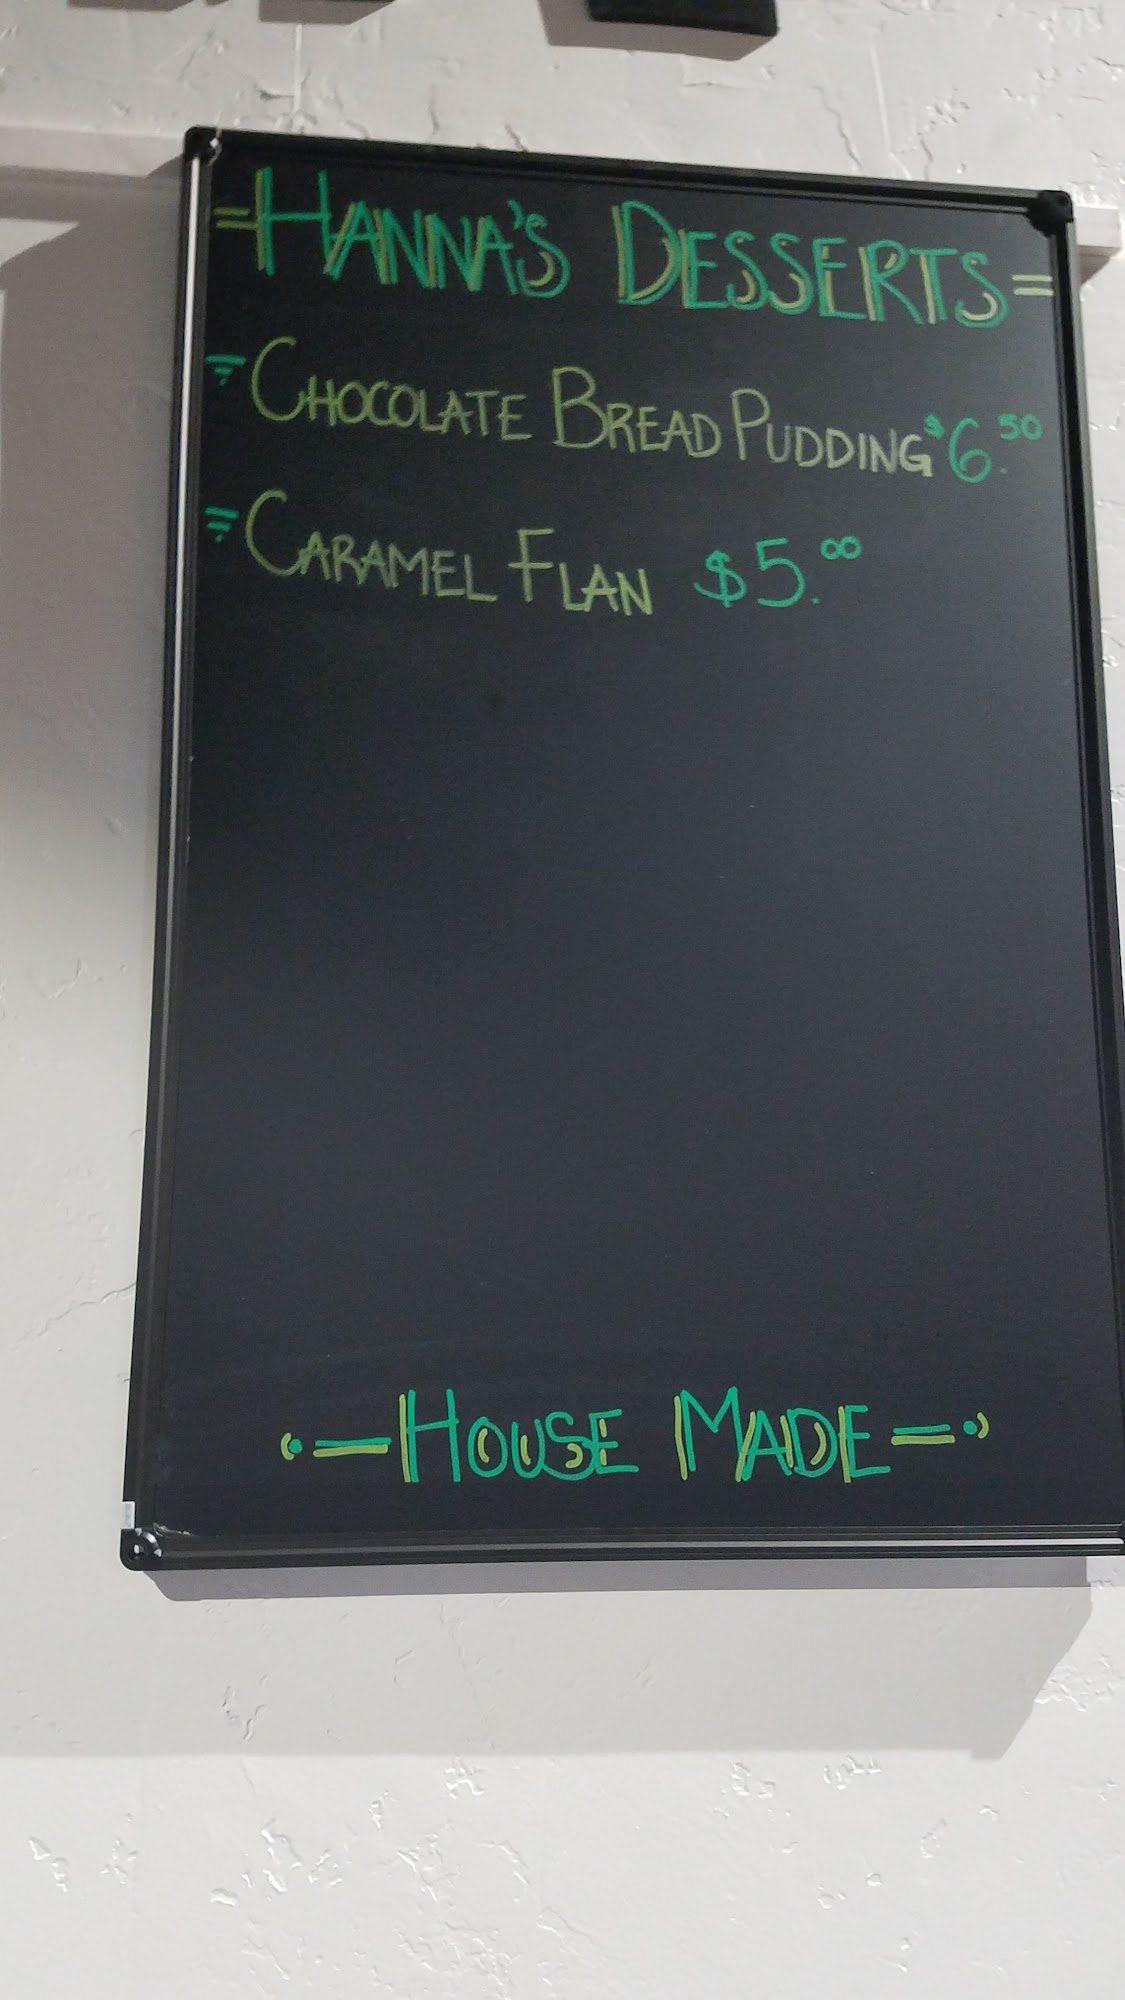 =HANNA'S DESSERTS=
CHOCOLATE BREAD PUDDING $6.50
CARAMEL FLAN $5.00
HOUSE MADE